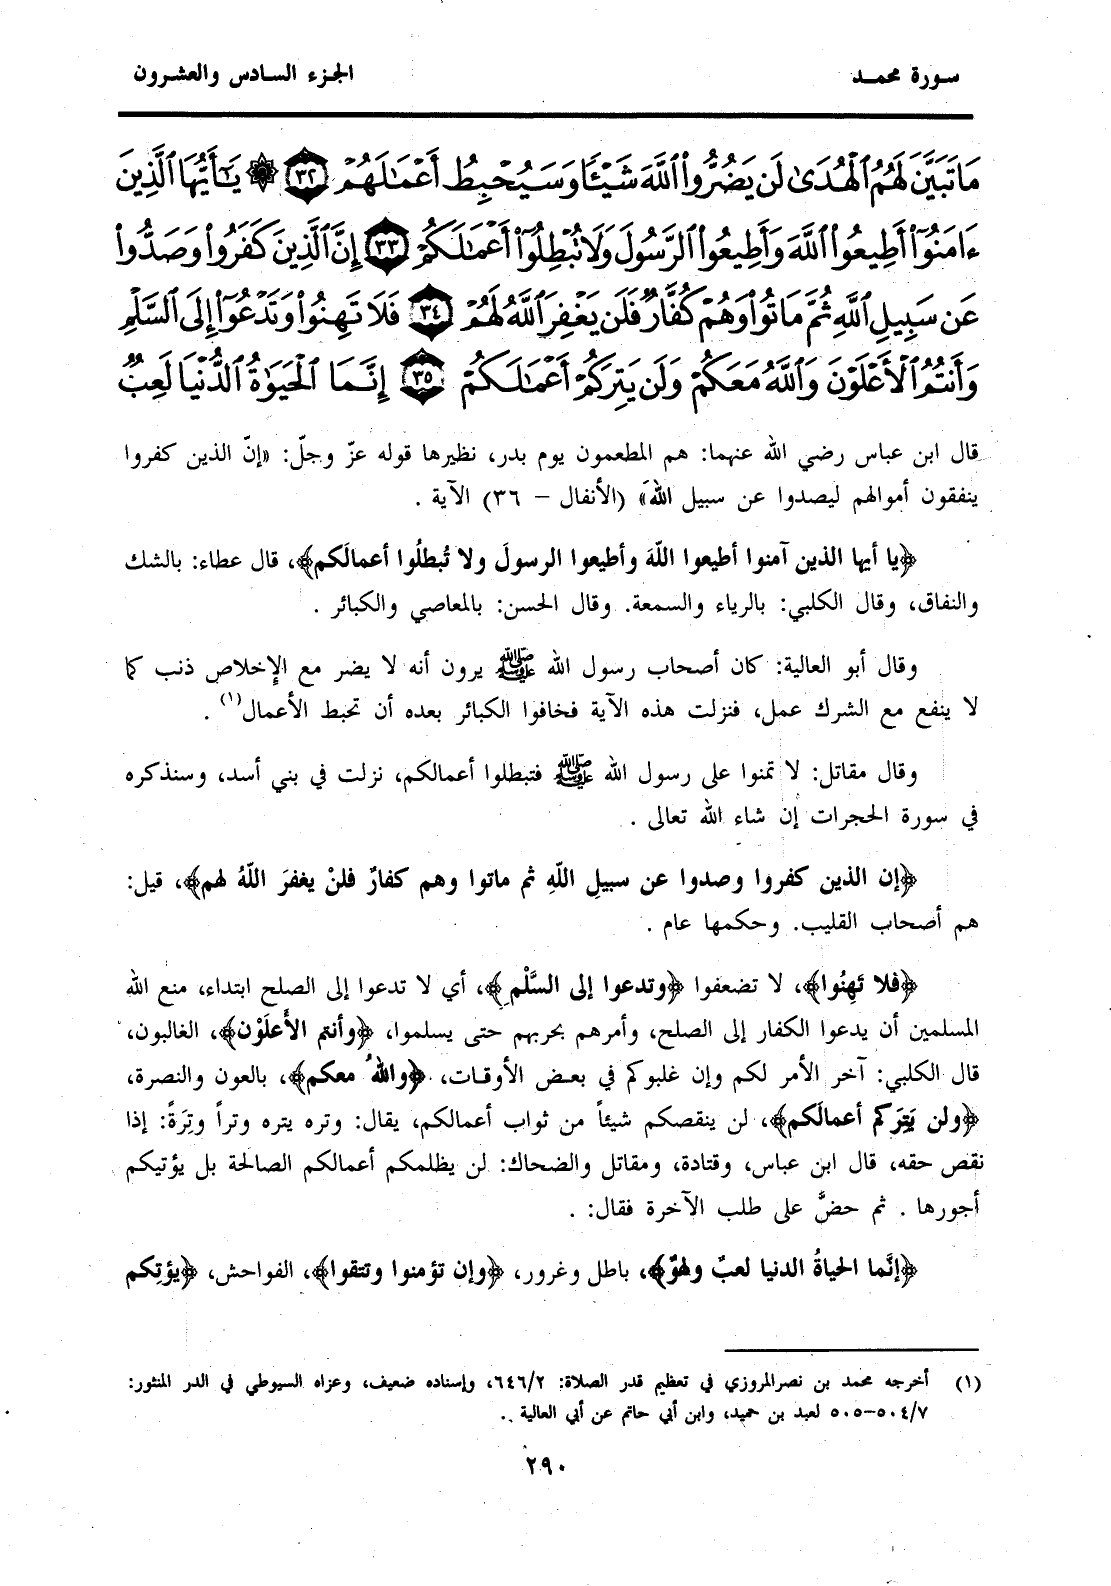 سورة محمد
الجزء السادس والعشرون
مَا تَبَيَّنَ لَهُمُ ٱلْهُدَىٰ لَن يَضُرُّوا۟ ٱللَّهَ شَيْـًٔا وَسَيُحْبِطُ أَعْمَـٰلَهُمْ ٣٢ ۞ يَـٰٓأَيُّهَا ٱلَّذِينَ
ءَامَنُوٓا۟ أَطِيعُوا۟ ٱللَّهَ وَأَطِيعُوا۟ ٱلرَّسُولَ وَلَا تُبْطِلُوٓا۟ أَعْمَـٰلَكُمْ ٣٣ إِنَّ ٱلَّذِينَ كَفَرُوا۟ وَصَدُّوا۟
عَن سَبِيلِ ٱللَّهِ ثُمَّ مَاتُوا۟ وَهُمْ كُفَّارٌ فَلَن يَغْفِرَ ٱللَّهُ لَهُمْ ٣٤ فَلَا تَهِنُوا۟ وَتَدْعُوٓا۟ إِلَى ٱلسَّلْمِ
وَأَنتُمُ ٱلْأَعْلَوْنَ وَٱللَّهُ مَعَكُمْ وَلَن يَتِرَكُمْ أَعْمَـٰلَكُمْ ٣٥ إِنَّمَا ٱلْحَيَوٰةُ ٱلدُّنْيَا لَعِبٌ
قال ابن عباس رضي الله عنهما: هم المطعمون يوم بدر، نظيرها قوله عزّ وجلّ: «إنّ الذين كفروا
ينفقون أموالهم ليصدوا عن سبيل الله» (الأنفال – ٣٦) الآية .
﴿يا أيها الذين آمنوا أطيعوا اللّهَ وأطيعوا الرسولَ ولا تُبطلُوا أعمالَكم﴾، قال عطاء: بالشك
والنفاق، وقال الكلبي: بالرياء والسمعة. وقال الحسن: بالمعاصي والكبائر .
وقال أبو العالية: كان أصحاب رسول الله ﷺ يرون أنه لا يضر مع الإخلاص ذنب كما
لا ينفع مع الشرك عمل، فنزلت هذه الآية فخافوا الكبائر بعده أن تحبط الأعمال(١) .
وقال مقاتل: لا تمنوا على رسول الله ﷺ فتبطلوا أعمالكم، نزلت في بني أسد، وسنذكره
في سورة الحجرات إن شاء الله تعالى .
﴿إن الذين كفروا وصدوا عن سبيلِ اللّهِ ثم ماتوا وهم كفارٌ فلنْ يغفرَ اللّهُ لهم﴾، قيل:
هم أصحاب القليب. وحكمها عام .
﴿فلا تَهِنُوا﴾، لا تضعفوا ﴿وتدعوا إلى السَّلْمِ﴾، أي لا تدعوا إلى الصلح ابتداء، منع الله
المسلمين أن يدعوا الكفار إلى الصلح، وأمرهم بحربهم حتى يسلموا، ﴿وأنتم الأَعلَوْن﴾، الغالبون،
قال الكلبي: آخر الأمر لكم وإن غلبوكم في بعض الأوقات، ﴿واللهُ معكم﴾، بالعون والنصرة،
﴿ولن يَتِرَكم أعمالَكم﴾، لن ينقصكم شيئاً من ثواب أعمالكم، يقال: وتره يتره وتراً وتِرَةً: إذا
نقص حقه، قال ابن عباس، وقتادة، ومقاتل والضحاك: لن يظلمكم أعمالكم الصالحة بل يؤتيكم
أجورها . ثم حضَّ على طلب الآخرة فقال: .
﴿إنَّما الحياةُ الدنيا لعبٌ ولهوٌ﴾، باطل وغرور، ﴿وإن تؤمنوا وتتقوا﴾، الفواحش، ﴿يؤتِكم
(١) أخرجه محمد بن نصر المروزي في تعظيم قدر الصلاة: ٦٤٦/٢، وإسناده ضعيف، وعزاه السيوطي في الدر المنثور:
٥٠٤/٧–٥٠٥ لعبد بن حميد، وابن أبي حاتم عن أبي العالية .
٢٩٠